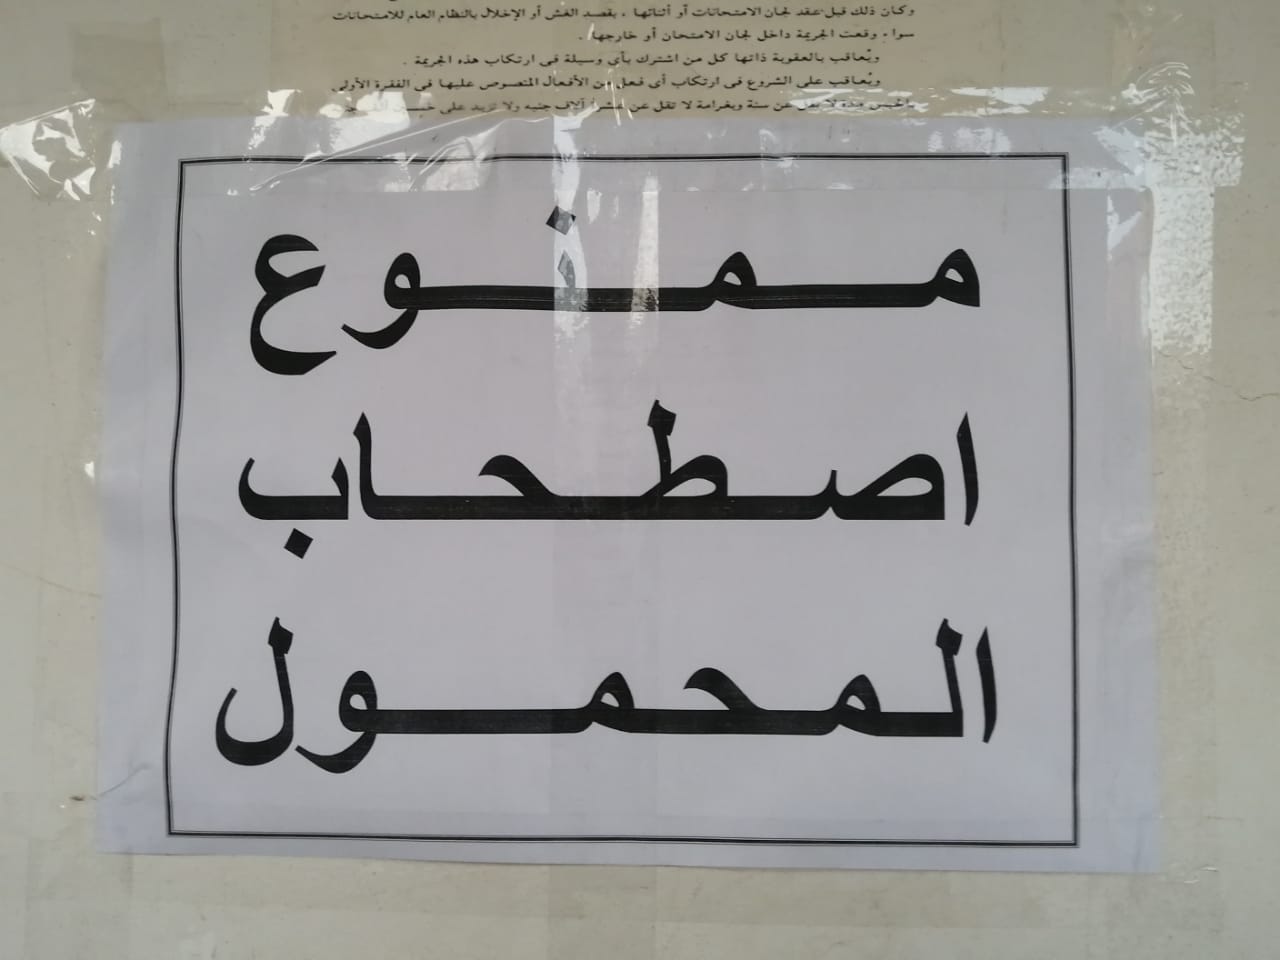 وكان ذلك قبل عقد لجان الامتحانات أو أثنائها ، بقصد الغش أو الإخلال بالنظام العام للامتحانات
سواء وقعت الجريمة داخل لجان الامتحان أو خارجها .
ويُعاقب بالعقوبة ذاتها كل من اشترك بأى وسيلة فى ارتكاب هذه الجريمة .
ويُعاقب على الشروع فى ارتكاب أى فعل من الأفعال المنصوص عليها فى الفقرة الأولى
بالحبس مدة لا تقل عن سنة وبغرامة لا تقل عن عشرة آلاف جنيه ولا تزيد على
ممنوع
اصطحاب
المحمول